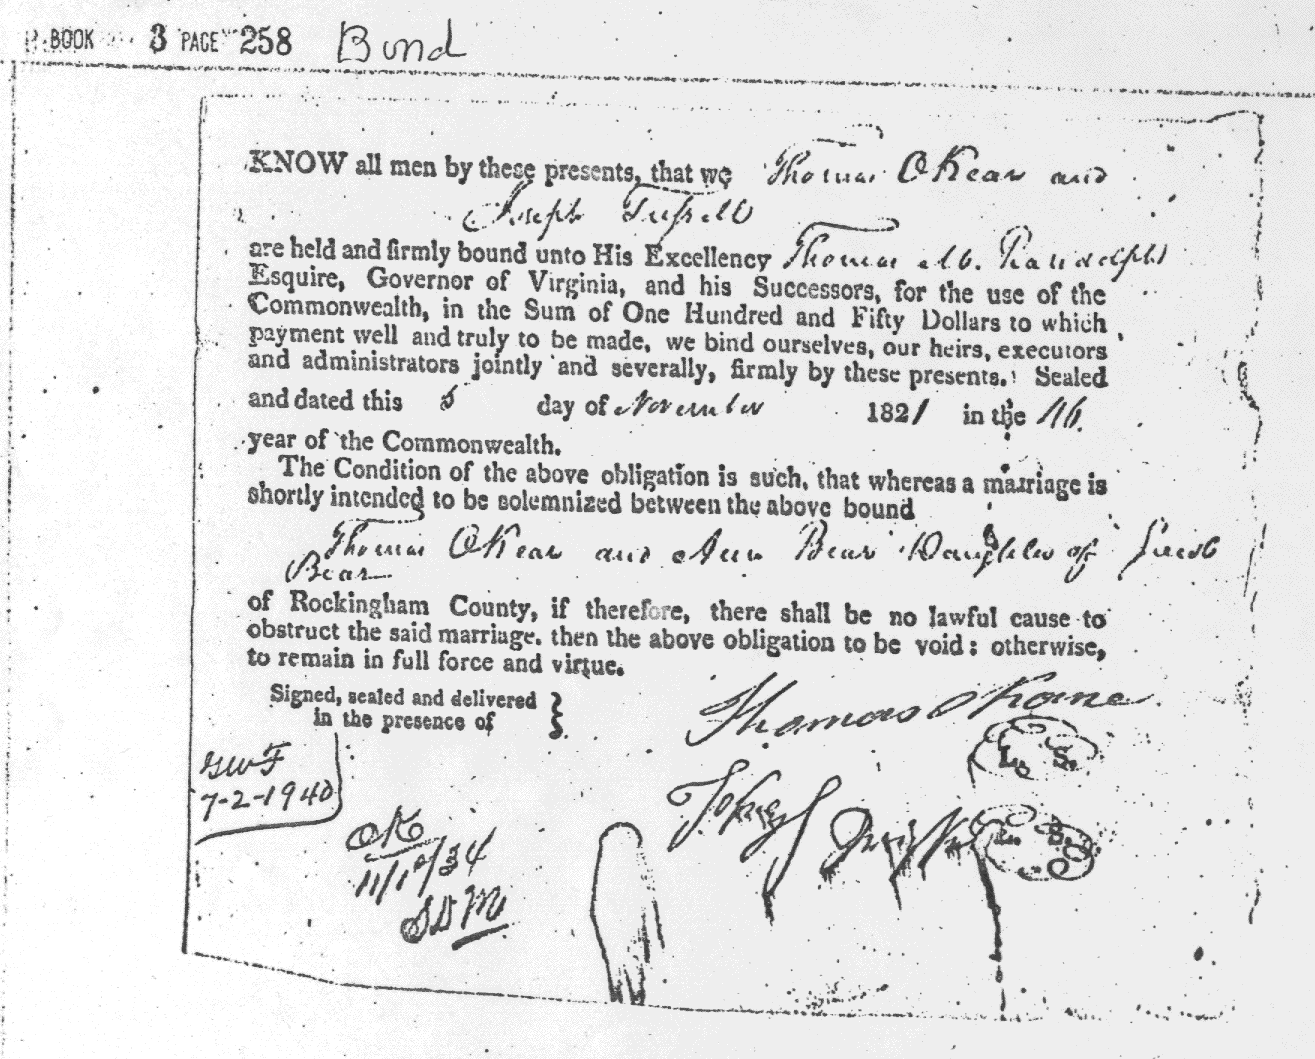 BOOK 3 PAGE 258 Bond
KNOW all men by these presents, that we Thomas OKean and
Joseph Tussell
are held and firmly bound unto His Excellency Thomas M. Randolph
Esquire, Governor of Virginia, and his Successors, for the use of the
Commonwealth, in the Sum of One Hundred and Fifty Dollars to which
payment well and truly to be made, we bind ourselves, our heirs, executors
and administrators jointly and severally, firmly by these presents. Sealed
and dated this 5 day of November 1821 in the 46.
year of the Commonwealth.
The Condition of the above obligation is such, that whereas a marriage is
shortly intended to be solemnized between the above bound
Thomas OKean and Ann Bear Daughter of Jacob
Bear
of Rockingham County, if therefore, there shall be no lawful cause to
obstruct the said marriage. then the above obligation to be void: otherwise,
to remain in full force and virtue.
Signed, sealed and delivered
in the presence of
Thomas OKane
L. S.
L. S.
7-2-1940
OK